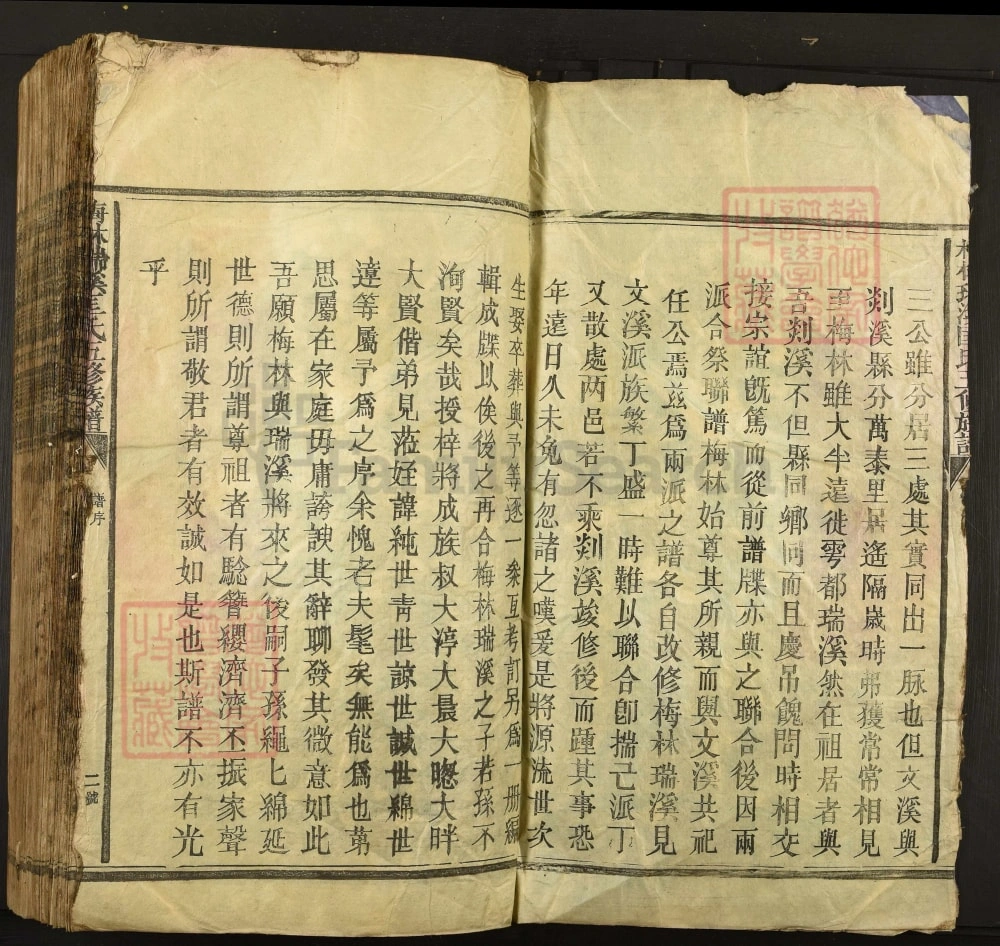 三公雖分居三處其實同出一脉也但文溪與
剡溪縣分萬泰里居遙隔歲時弗獲常常相見
至梅林雖大半遠徙雩都瑞溪然在祖居者與
吾剡溪不但縣同鄉同而且慶吊餽問時相交
接宗誼既篤而從前譜牒亦與之聯合後因兩
派合祭聯譜梅林始尊其所親而與文溪共祀
任公焉茲爲兩派之譜各自改修梅林瑞溪見
文溪派族繁丁盛一時難以聯合卽揣己派丁
又散處两邑若不乘剡溪竣修後而踵其事恐
年遠日久未免有忽諸之嘆爰是將源流世次
生娶卒葬與予等逐一叅互考訂另爲一册編
輯成牒以俟後之再合梅林瑞溪之子若孫不
洵賢矣哉授梓將成族叔大渟大晨大聰大畔
大賢偕弟見蒞姪諱純世青世諒世誠世綿世
達等屬予爲之序余愧老夫髦矣無能爲也苐
思屬在家庭毋庸誇諛其辭聊發其微意如此
吾願梅林與瑞溪將來之後嗣子孫繩匕綿延
世德則所謂尊祖者有驗簪纓濟濟丕振家聲
則所謂敬君者有效誠如是也斯譜不亦有光
乎
譜序
二號